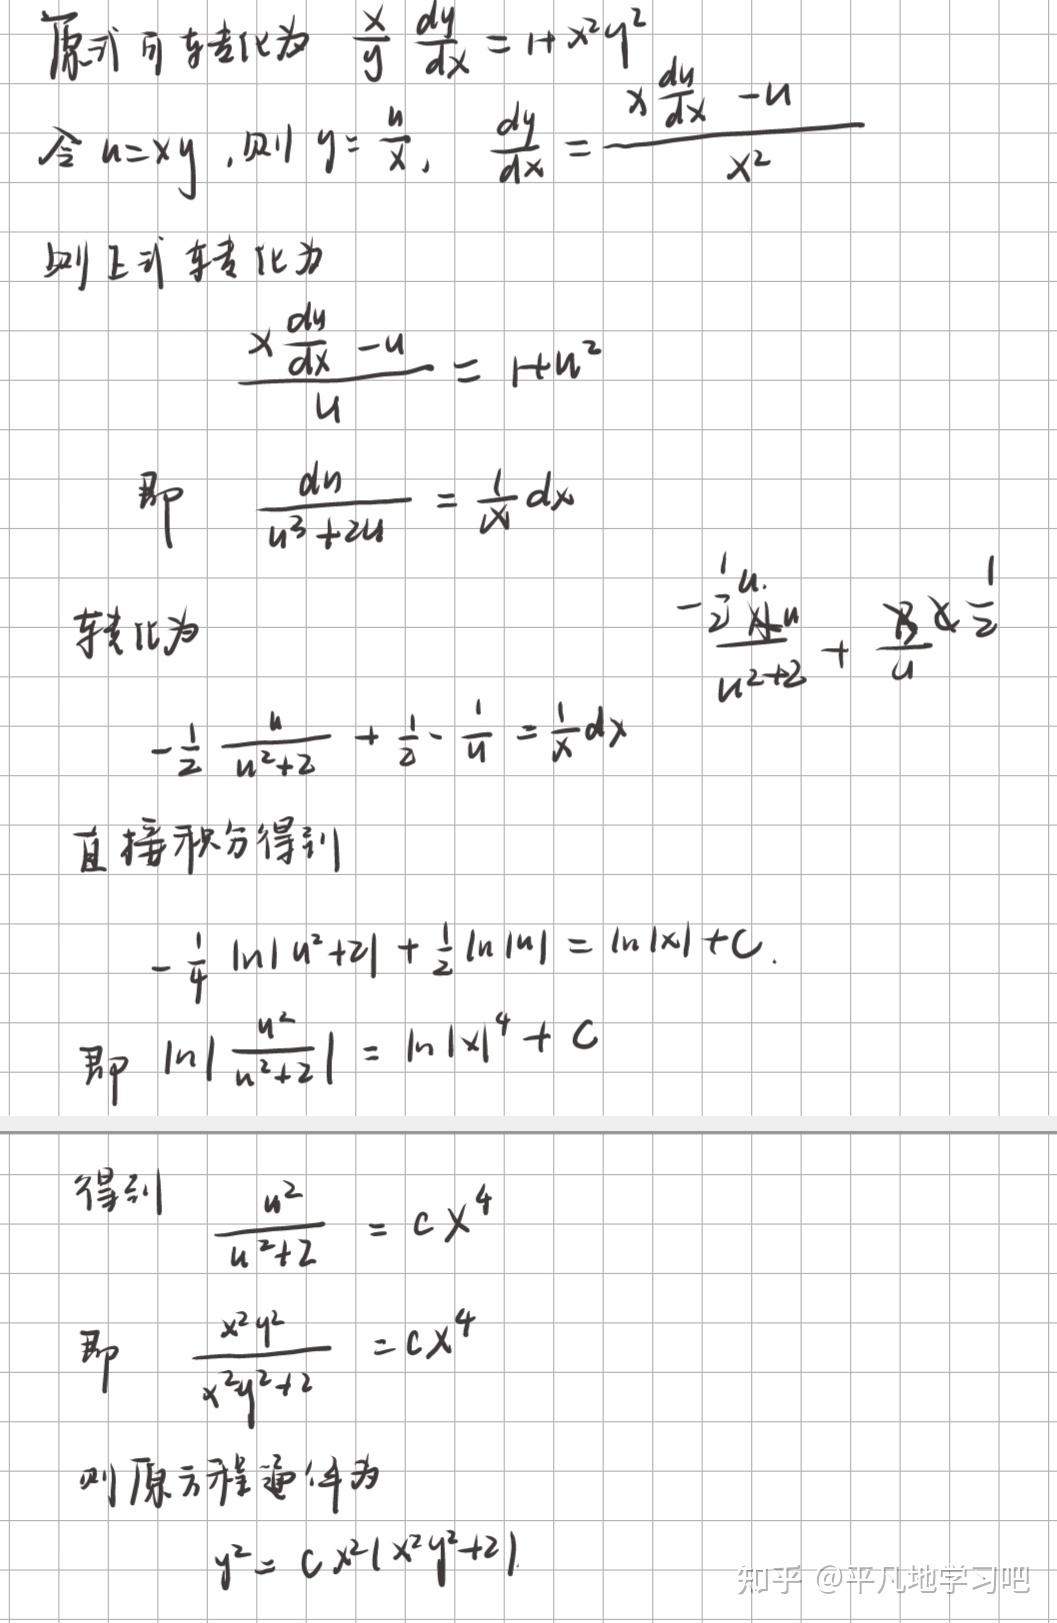 原式可转化为 x/y dy/dx = 1+x²y²
令 u=xy, 则 y= u/x, dy/dx = (x du/dx - u)/x²
则上式转化为
(x du/dx - u)/u = 1+u²
即 du/(u³+2u) = 1/x dx
转化为
-1/2 u/(u²+2) + 1/2 · 1/u = 1/x dx
直接积分得到
-1/4 ln|u²+2| + 1/2 ln|u| = ln|x| + C.
即 ln|u²/(u²+2)| = ln|x|⁴ + C
得到 u²/(u²+2) = cx⁴
即 x²y²/(x²y²+2) = cx⁴
则原方程通解为
y² = cx²(x²y²+2).
知乎 @平凡地学习吧